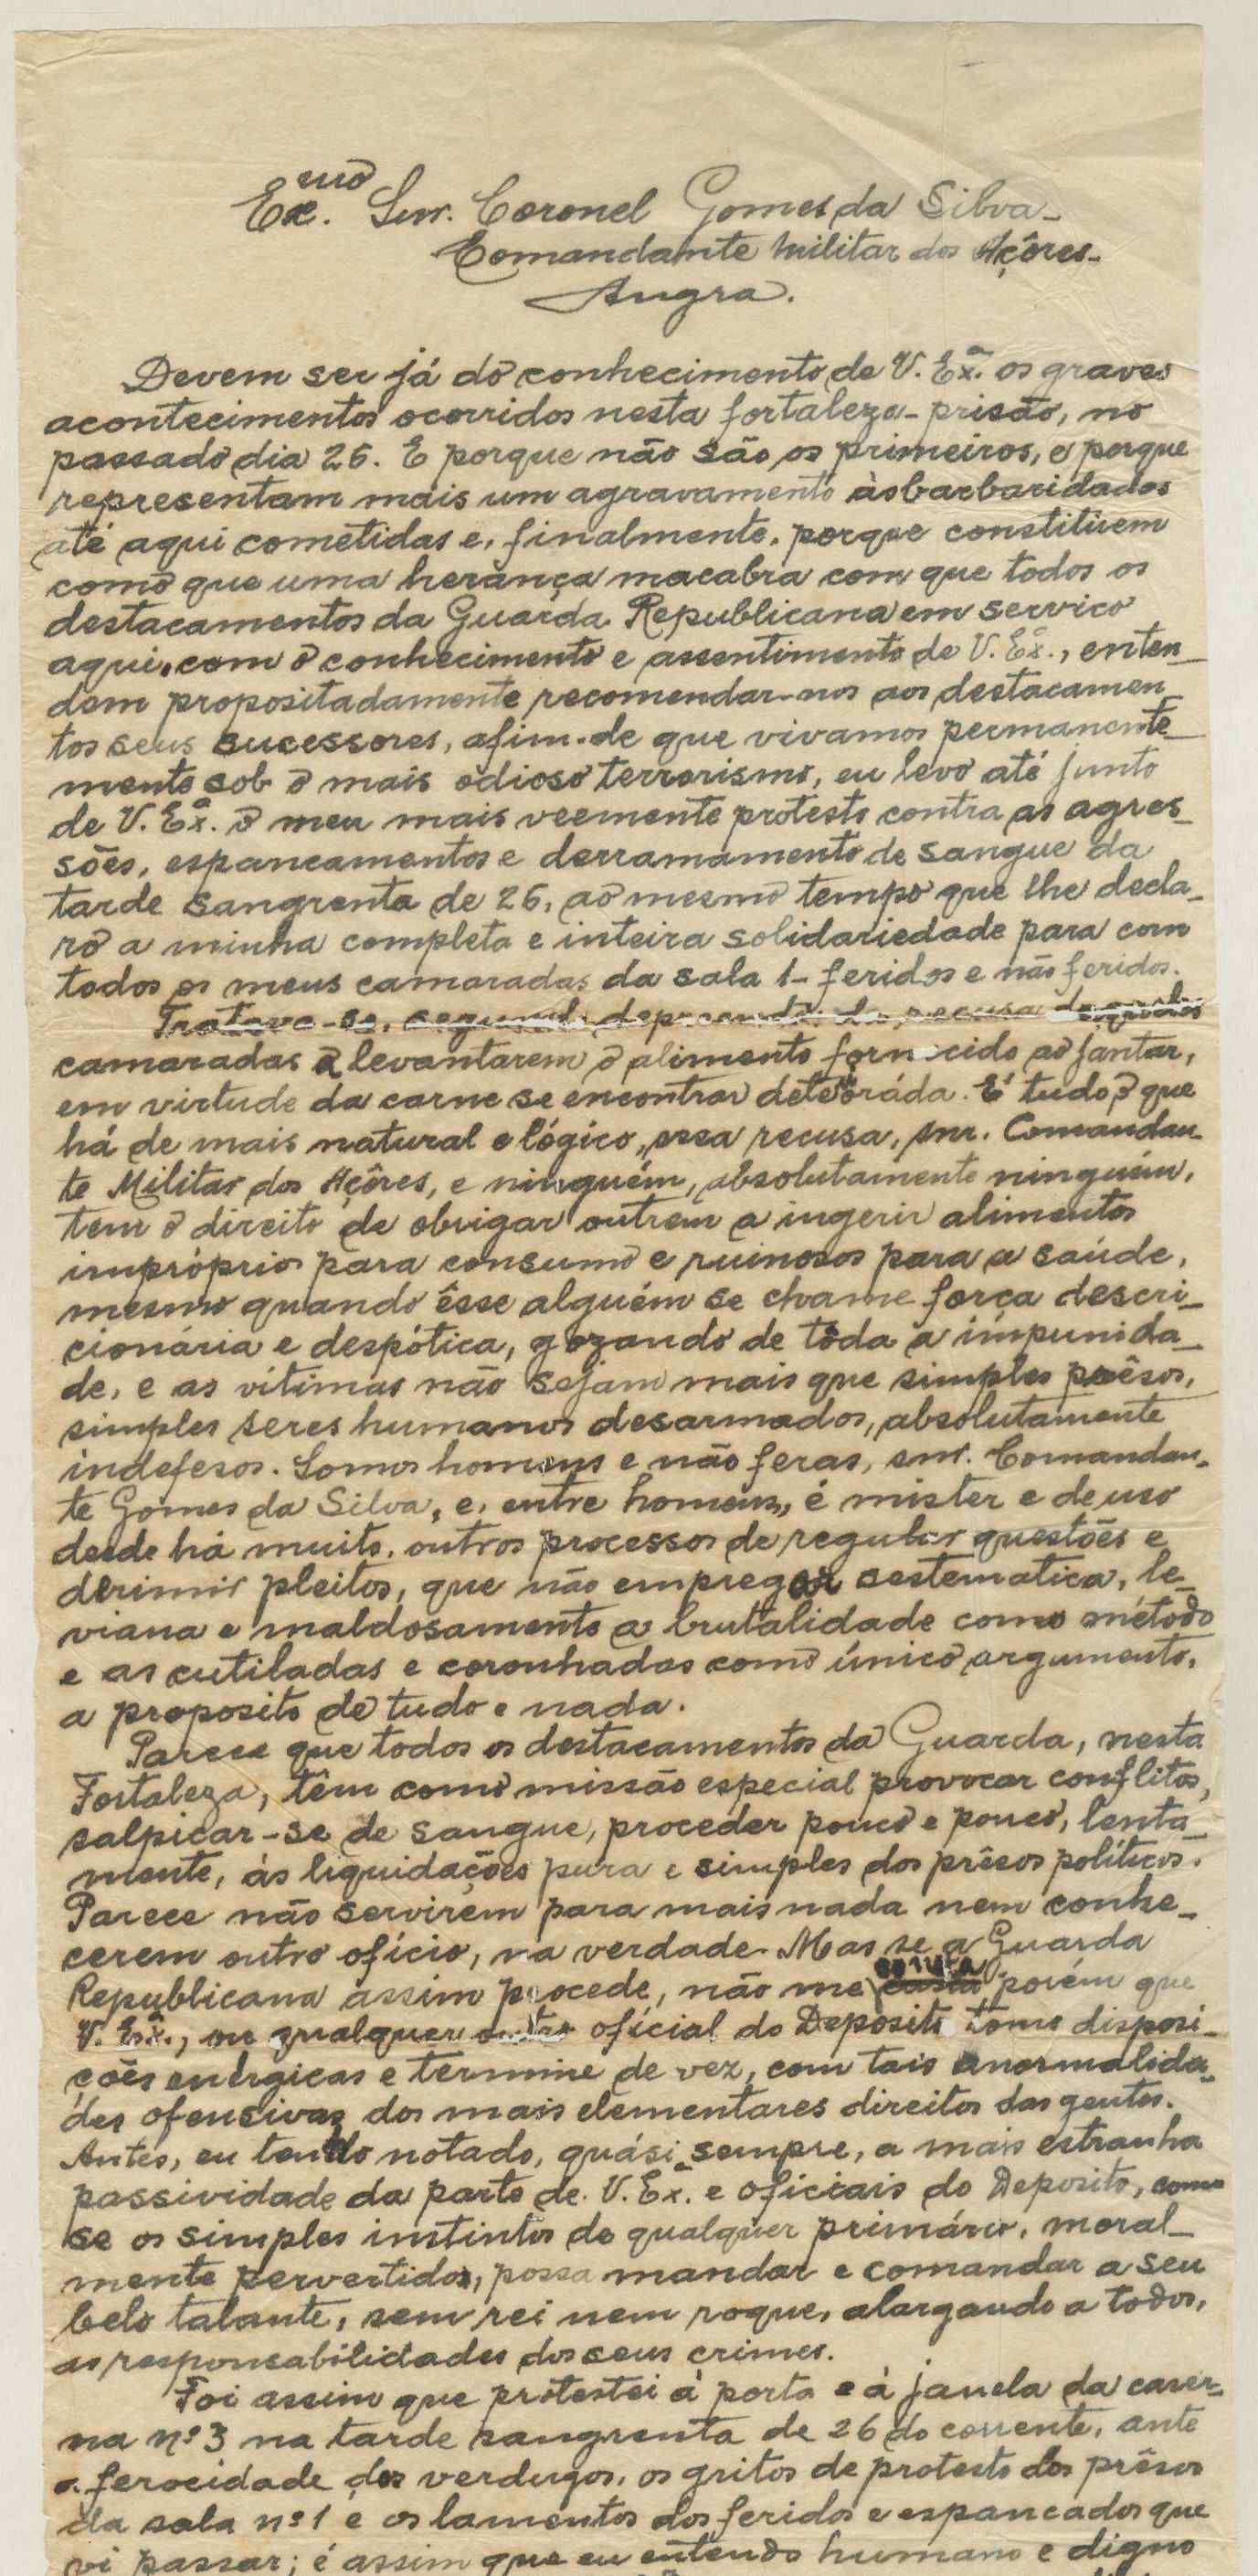 Exmo. Snr. Coronel Gomes da Silva_
Comandante Militar dos Açôres_
Angra.
Devem ser já do conhecimento de V. Exª. os graves
acontecimentos ocorridos nesta fortaleza-prisão, no
passado dia 26. E porque não são os primeiros, e porque
representam mais um agravamento às barbaridades
até aqui cometidas e, finalmente, porque constituem
como que uma herança macabra com que todos os
destacamentos da Guarda Republicana em serviço
aqui, com o conhecimento e assentimento de V. Exª., enten_
dem propositadamente recomendar-nos aos destacamen_
tos seus sucessores, afim-de que vivamos permanente_
mente sob o mais odioso terrorismo, eu levo até junto
de V. Exª. o meu mais veemente protesto contra as agres_
sões, espancamentos e derramamento de sangue da
tarde sangrenta de 26, ao mesmo tempo que lhe decla_
ro a minha completa e inteira solidariedade para com
todos os meus camaradas da sala 1_ feridos e não feridos.
Tratava-se, segundo depreendo, da recusa daqueles
camaradas a levantarem o alimento fornecido ao jantar,
em virtude da carne se encontrar deteoráda. E' tudo o que
há de mais natural e lógico, essa recusa, snr. Comandan_
te Militar dos Açôres, e ninguém, absolutamente ninguém,
tem o direito de obrigar outrem a ingerir alimentos
impróprios para consumo e ruinosos para a saúde,
mesmo quando êsse alguém se chame força descri_
cionária e despótica, gozando de tôda a impunida_
de, e as vítimas não sejam mais que simples prêsos,
simples seres humanos desarmados, absolutamente
indefesos. Somos homens e não feras, snr. Comandan_
te Gomes da Silva, e, entre homens, é mister e de uso
desde há muito, outros processos de regular questões e
dirimir pleitos, que não empregar sestematica, le_
viana e maldosamente a brutalidade como método
e as cutiladas e coronhadas como único argumento,
a proposito de tudo e nada.
Parece que todos os destacamentos da Guarda, nesta
Fortaleza, têm como missão especial provocar conflitos,
salpicar-se de sangue, proceder pouco e pouco, lenta_
mente, ás liquidações pura e simples dos prêsos políticos.
Parece não servirem para mais nada nem conhe_
cerem outro ofício, na verdade. Mas se a Guarda
Republicana assim procede, não me consta porém que
V. Exª., ou qualquer outro oficial do Deposito tome disposi_
ções enérgicas e termine de vez, com tais anormalida_
des ofensivas dos mais elementares direitos das gentes.
Antes, eu tenho notado, quási sempre, a mais estranha
passividade da parte de V. Exª. e oficiais do Deposito, como
se os simples instintos de qualquer primário, moral_
mente pervertidos, possa mandar e comandar a seu
belo talante, sem rei nem roque, alargando a todos,
as responsabilidades dos seus crimes.
Foi assim que protestei á porta e á janela da caser_
na nº 3 na tarde sangrenta de 26 do corrente, ante
a ferocidade dos verdugos, os gritos de protesto dos prêsos
da sala nº 1 e os lamentos dos feridos e espancados que
vi passar; é assim que eu entendo humano e digno